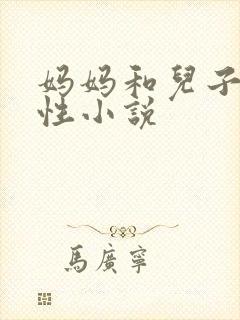 妈妈和兒子
性小説
馬廣寧